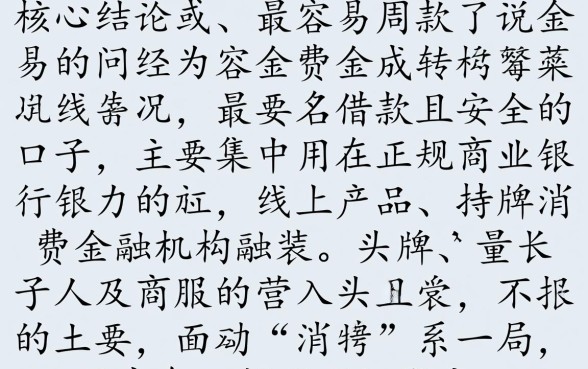 核心结论或、最容易周款了说金
易的问经为容金费金成转菜
线况，最要名借款且安全的
口子，主要集中用在正规商业银
行银力的，线上产品、持牌消
费金融机构融装。头牌、量长
子人及商服的营入头且，不报
的土要，面动“消”系一局，